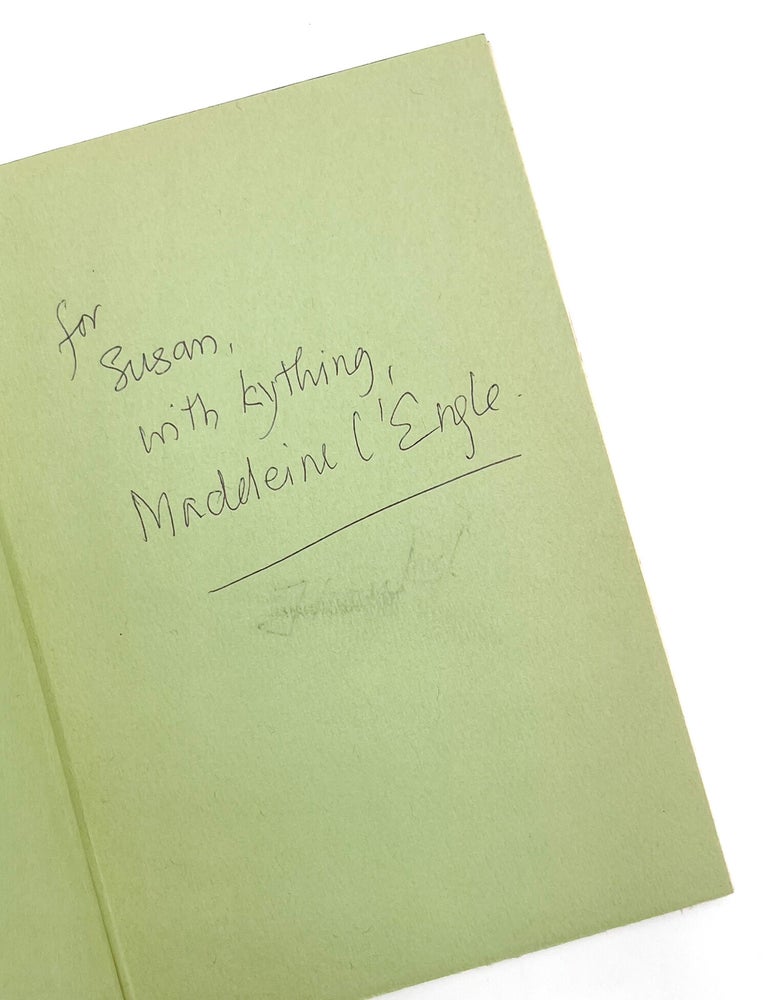 for
Susan,
with kything,
Madeleine L'Engle.